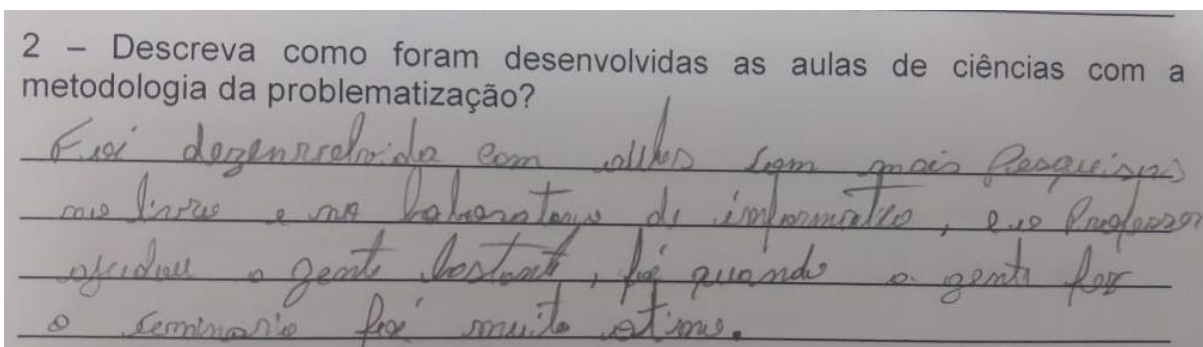 2 – Descreva como foram desenvolvidas as aulas de ciências com a
metodologia da problematização?
Foi dezenvolvida com aulas com mais Pesquisas
no livro e no laboratorio de informatica, e o Professor
ajudou a gente bastante, foi quando a gente fez
o seminario foi muito otimo.